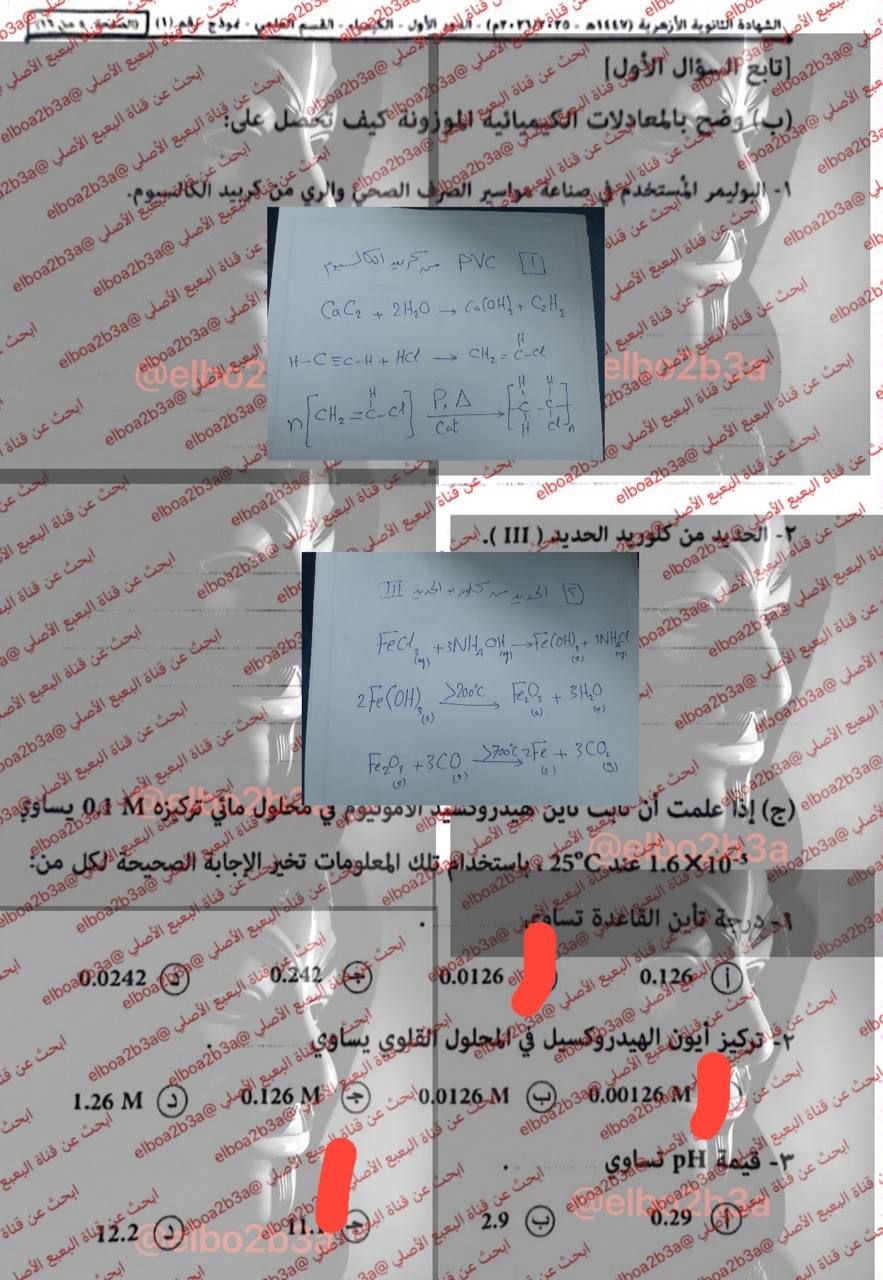 الشهادة الثانوية الأزهرية (١٤٤٧هـ - ٢٠٢٥/٢٠٢٦م) - الدور الأول - الكيمياء - القسم العلمي - نموذج رقم (١)
[تابع السؤال الأول]
(ب) وضح بالمعادلات الكيميائية الموزونة كيف تحصل على:
١- البوليمر المستخدم في صناعة مواسير الصرف الصحي والري من كربيد الكالسيوم.
1 PVC من كربيد الكالسيوم
CaC2 + 2H2O → Ca(OH)2 + C2H2
H-C≡C-H + HCl → CH2=C-Cl
H
n[CH2=C-Cl] P, Δ Cat → [C-C]n
H H H H Cl
٢- الحديد من كلوريد الحديد ( III ).
٢ الحديد من كلوريد الحديد III
FeCl3(aq) + 3NH4OH(aq) → Fe(OH)3(s) + 3NH4Cl(aq)
2Fe(OH)3(s) >200°C → Fe2O3(s) + 3H2O(v)
Fe2O3(s) + 3CO(g) >700°C → 2Fe(s) + 3CO2(g)
(ج) إذا علمت أن ثابت تأين هيدروكسيد الأمونيوم في محلول مائي تركيزه 0.1 M يساوي
1.6×10-5 عند 25°C ، باستخدام تلك المعلومات تخير الإجابة الصحيحة لكل من:
١- درجة تأين القاعدة تساوي .
أ 0.126 0.0126 ج 0.242 د 0.0242
٢- تركيز أيون الهيدروكسيل في المحلول القلوي يساوي .
0.00126 M ب 0.0126 M ج 0.126 M د 1.26 M
٣- قيمة pH تساوي .
أ 0.29 ب 2.9 ج 11. د 12.2
ابحث عن قناة البعبع الأصلي @elboa2b3a
@elbo2b3a